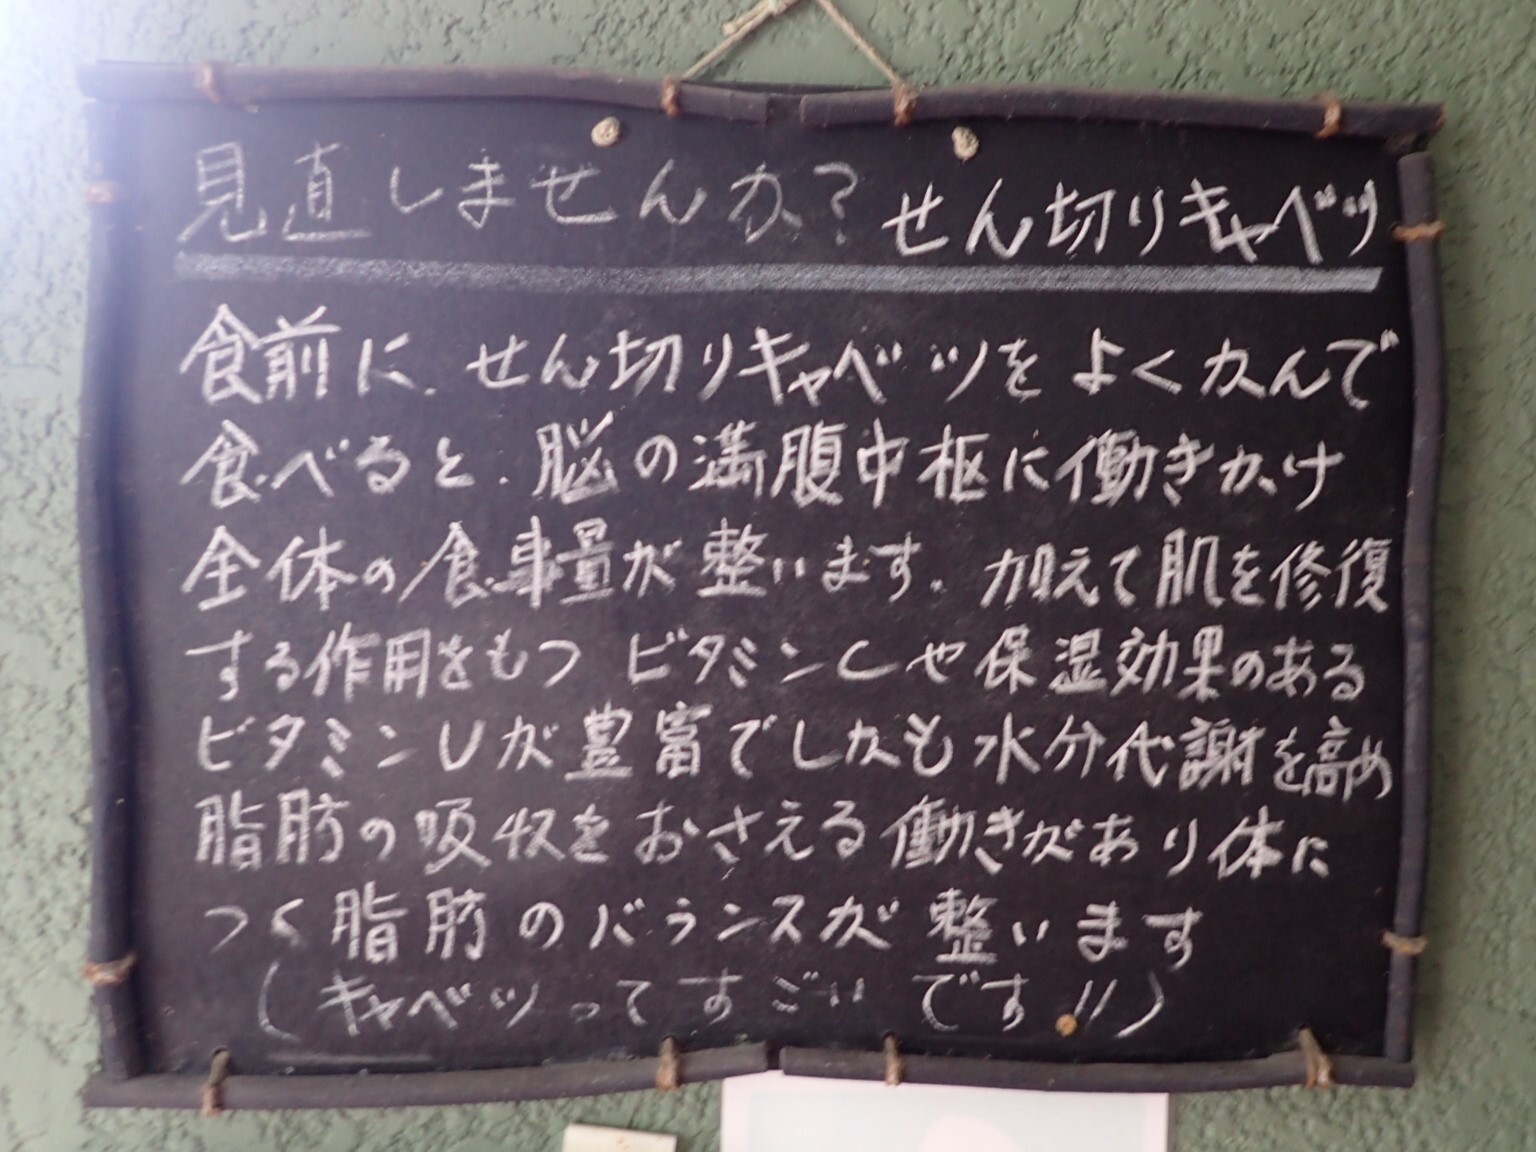 見直しませんか？せん切りキャベツ
食前に、せん切りキャベツをよくかんで
食べると、脳の満腹中枢に働きかけ
全体の食事量が整います。加えて肌を修復
する作用をもつ ビタミンCや保湿効果のある
ビタミンUが豊富でしかも水分代謝を高め
脂肪の吸収をおさえる働きがあり体に
つく脂肪のバランスが整います
（キャベツってすごいです!!）